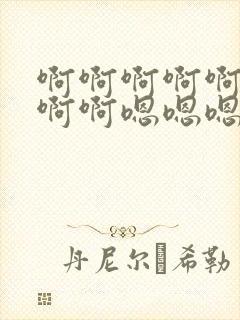 啊啊啊啊啊
啊啊嗯嗯嗯
丹尼尔·希勒